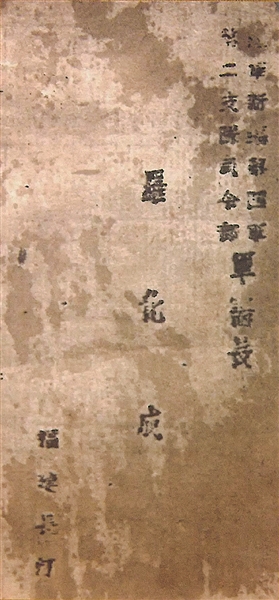 軍新編第四軍
第二支隊司令部
軍
羅化成
福建長汀